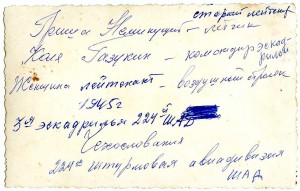 старший лейтенант
Гриша Неминущий – летчик
Коля Газукин – командир эскадрильи
Женщина лейтенант – воздушный стрелок
1945г
3я эскадрилья 224й ШАД
Чехословакия
224я штурмовая авиадивизия
ШАД